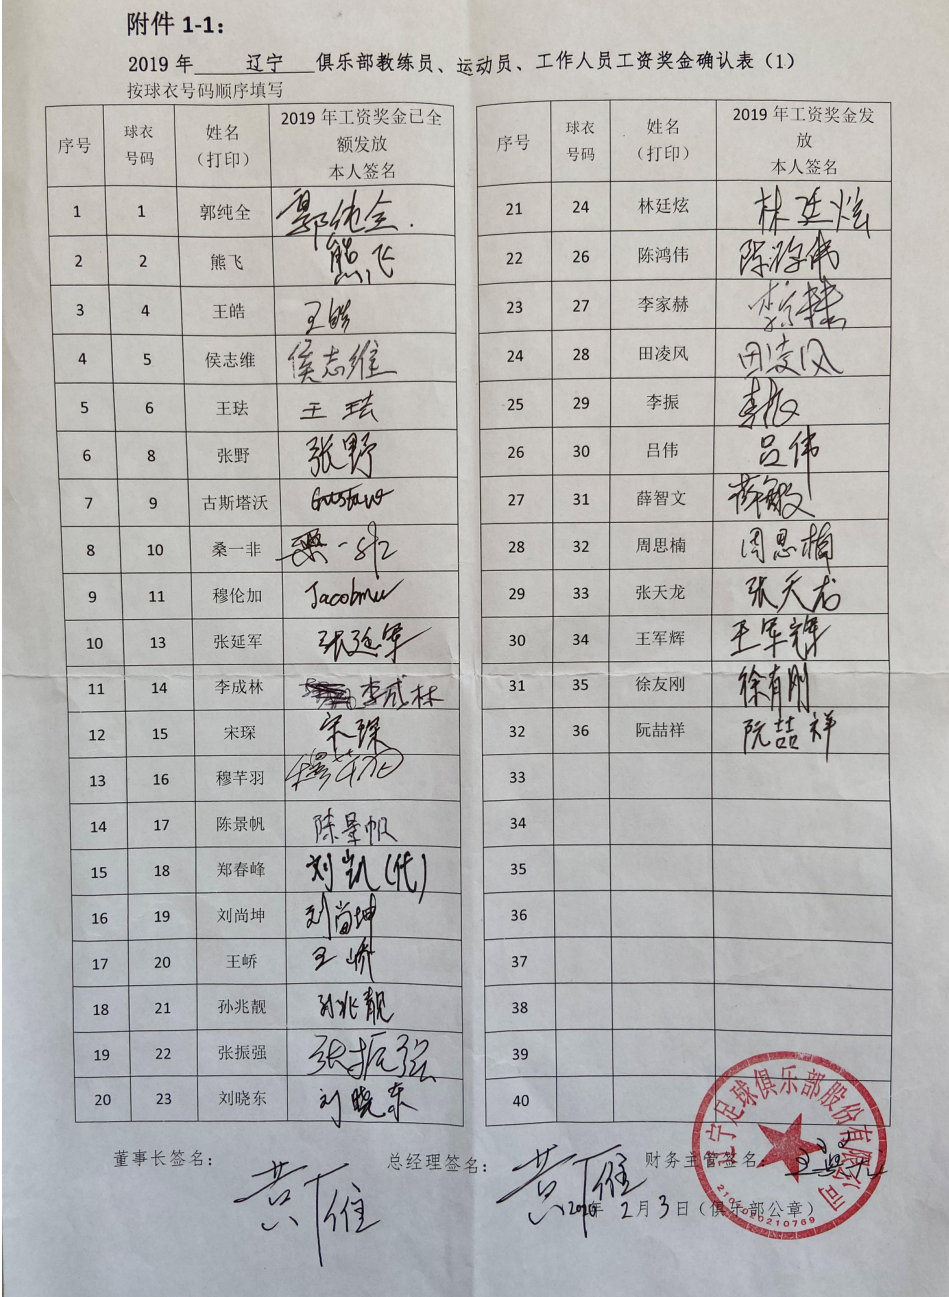 附件 1-1：
2019 年 辽宁 俱乐部教练员、运动员、工作人员工资奖金确认表（1）
按球衣号码顺序填写
序号 球衣号码 姓名（打印） 2019 年工资奖金已全额发放 本人签名
1 1 郭纯全 郭纯全.
2 2 熊飞 熊飞
3 4 王皓 王皓
4 5 侯志维 侯志维
5 6 王珐 王珐
6 8 张野 张野
7 9 古斯塔沃 Gustavo
8 10 桑一非 桑一非
9 11 穆伦加 Jacobmu
10 13 张延军 张延军
11 14 李成林 李成林
12 15 宋琛 宋琛
13 16 穆芊羽 穆芊羽
14 17 陈景帆 陈景帆
15 18 郑春峰 刘凯(代)
16 19 刘尚坤 刘尚坤
17 20 王峤 王峤
18 21 孙兆靓 孙兆靓
19 22 张振强 张振强
20 23 刘晓东 刘晓东
序号 球衣号码 姓名（打印） 2019 年工资奖金发放 本人签名
21 24 林廷炫 林廷炫
22 26 陈鸿伟 陈鸿伟
23 27 李家赫 李家赫
24 28 田凌风 田凌风
25 29 李振 李振
26 30 吕伟 吕伟
27 31 薛智文
28 32 周思楠 周思楠
29 33 张天龙 张天龙
30 34 王军辉 王军辉
31 35 徐友刚 徐有刚
32 36 阮喆祥 阮喆祥
33
34
35
36
37
38
39
40
董事长签名： 总经理签名： 财务主管签名：
2020年 2月 3日（俱乐部公章）
宁足球俱乐部股份有限公司